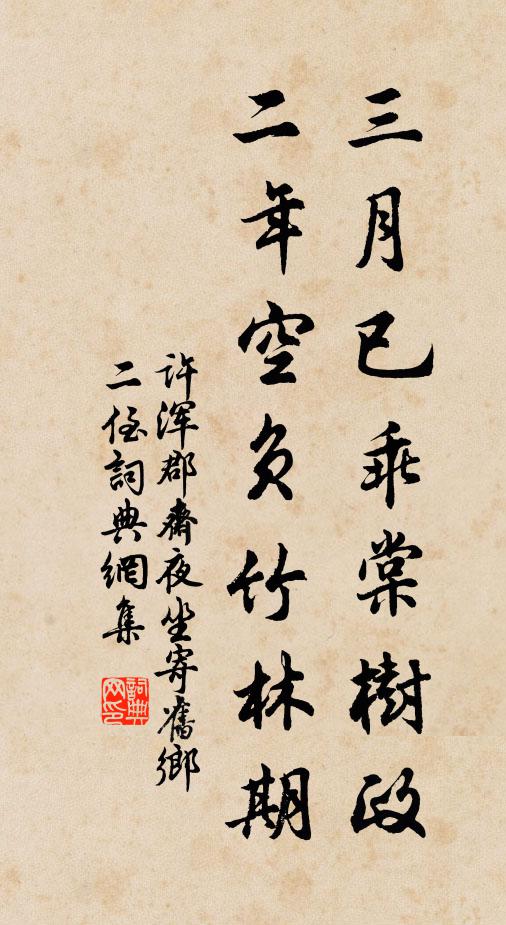 三月已乖棠樹政
二年空負竹林期
许浑郡齋夜坐寄舊鄉
二侄詞典網集
詞典网印